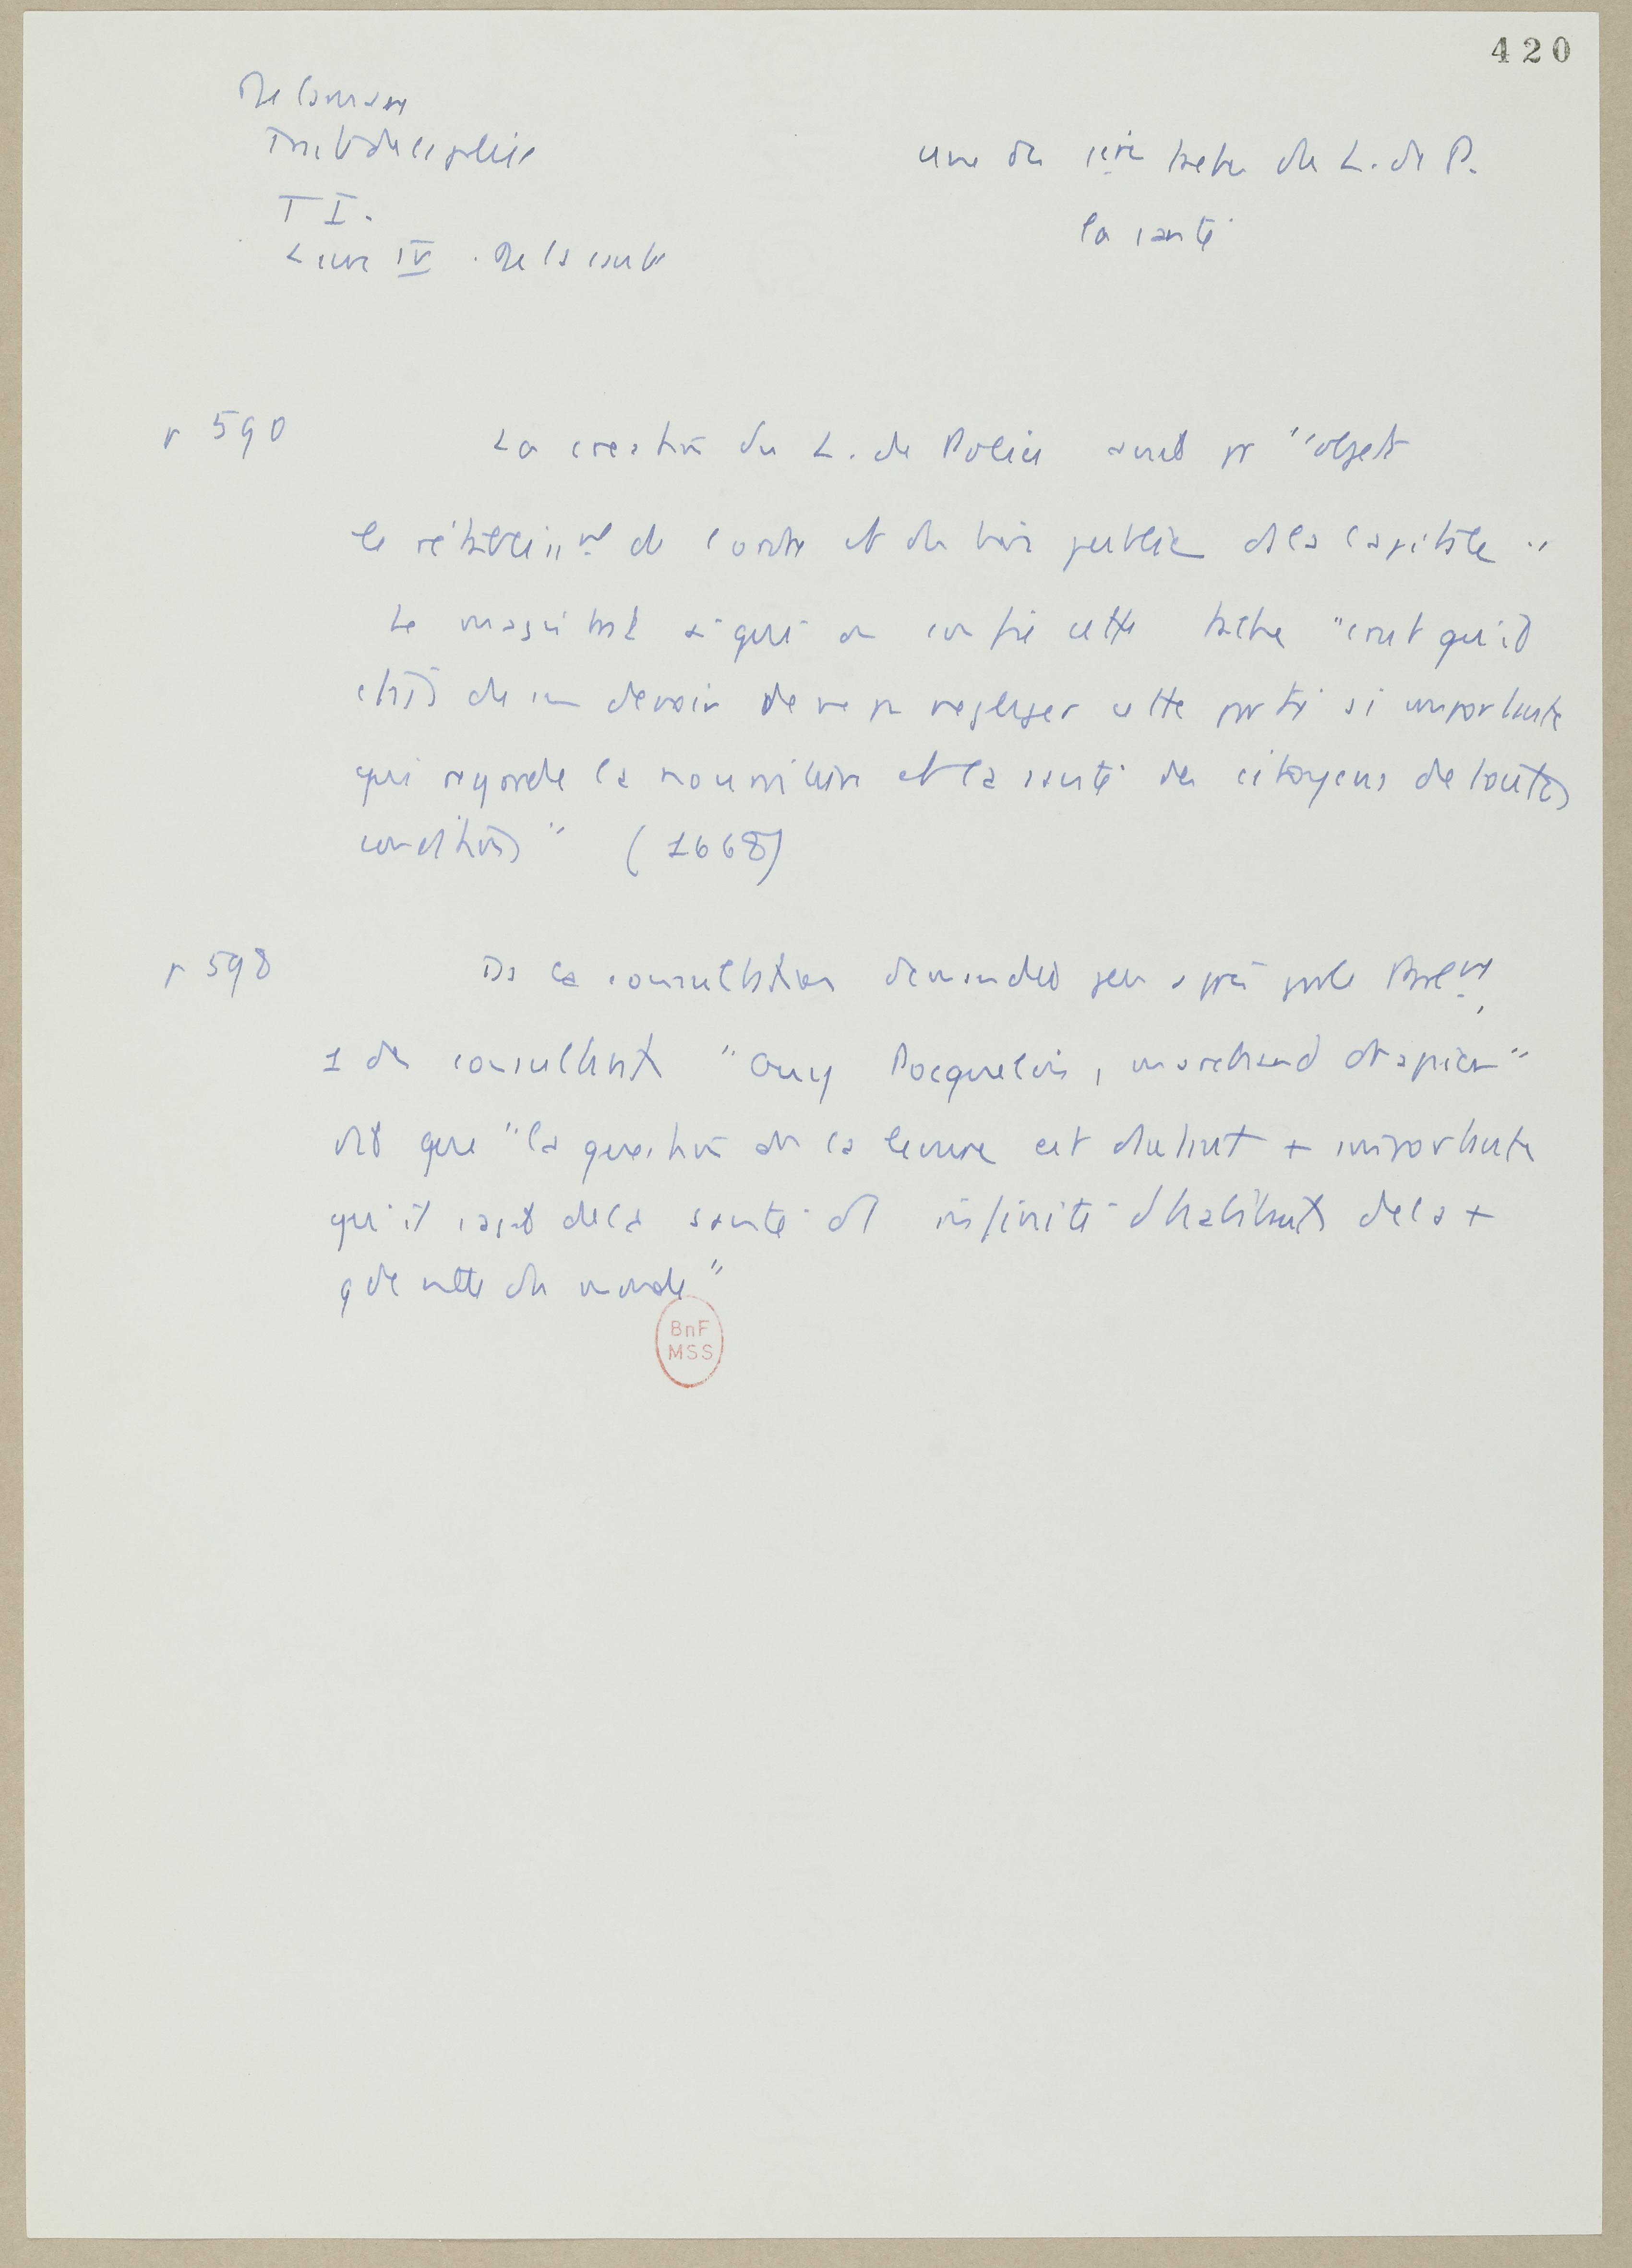 420
De Lamare
Traité de la police
T I.
Livre IV. De la santé
une des 1ères tâches du L. de P.
la santé
p 590
La création du L. de Police avait pr "objet
le rétablissmt de l'ordre et du bien public ds la capitale"
Le magistrat à qui on confie cette tâche "crut qu'il
était de son devoir de ne pas negliger cette partie si importante
qui regarde la nourriture et la santé des citoyens de toutes
conditions" (1668)
p 598
Ds la consultation demandée peu après par le Parlmt,
1 des consultants "Guy Pocquelin, marchand drapier"
dit que "la question de la levure est d'autant + importante
qu'il s'agit de la santé d' infinité d'habitants de la +
gde ville du monde"
BnF
MSS